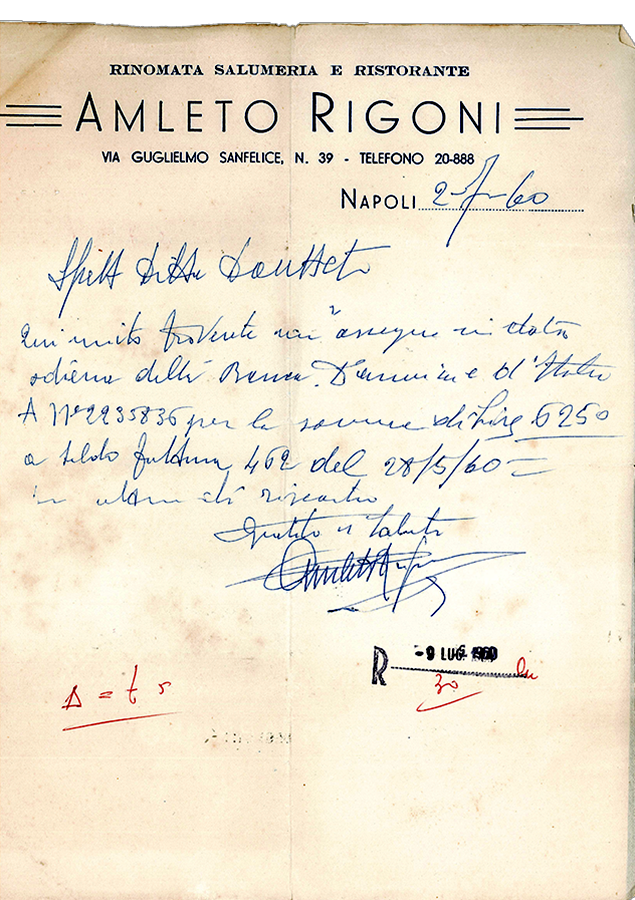 RINOMATA SALUMERIA E RISTORANTE
AMLETO RIGONI
VIA GUGLIELMO SANFELICE, N. 39 - TELEFONO 20-888
NAPOLI 2-7-60
Spett Ditta
Qui unito troverete un assegno in data
odierna della Banca d'America e d'Italia
A Nº 2235836 per la somma di Lire 6250
a saldo fattura 462 del 28/5/60 =
in attesa di riscontro
Distinti saluti
Amleto Rigoni
R -9 LUG. 1960
30